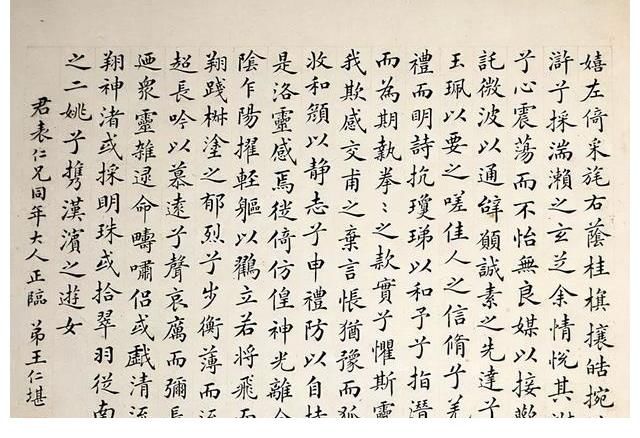 嬉左倚采旄右蔭桂旗攘皓捥
滸兮採湍瀨之玄芝余情悅其
兮心震蕩而不怡無良媒以接懽
託微波以通辭願誠素之先達兮
玉珮以要之嗟佳人之信脩兮羌
禮而明詩抗瓊珶以和予兮指潛
而為期執拳〻之款實兮懼斯靈
我欺感交甫之棄言悵猶豫而狐
收和顏以静志兮申禮防以自持
是洛靈感焉徙倚仿偟神光離合
陰乍陽擢輕軀以鶴立若將飛而
翔踐椒塗之郁烈兮步衡薄而流
超長吟以慕遠兮聲哀厲而彌長
迺衆靈雜遝命疇嘯侶或戲清流
翔神渚或採明珠或拾翠羽從南
之二姚兮携漢濱之遊女
君表仁兄同年大人正臨 弟王仁堪